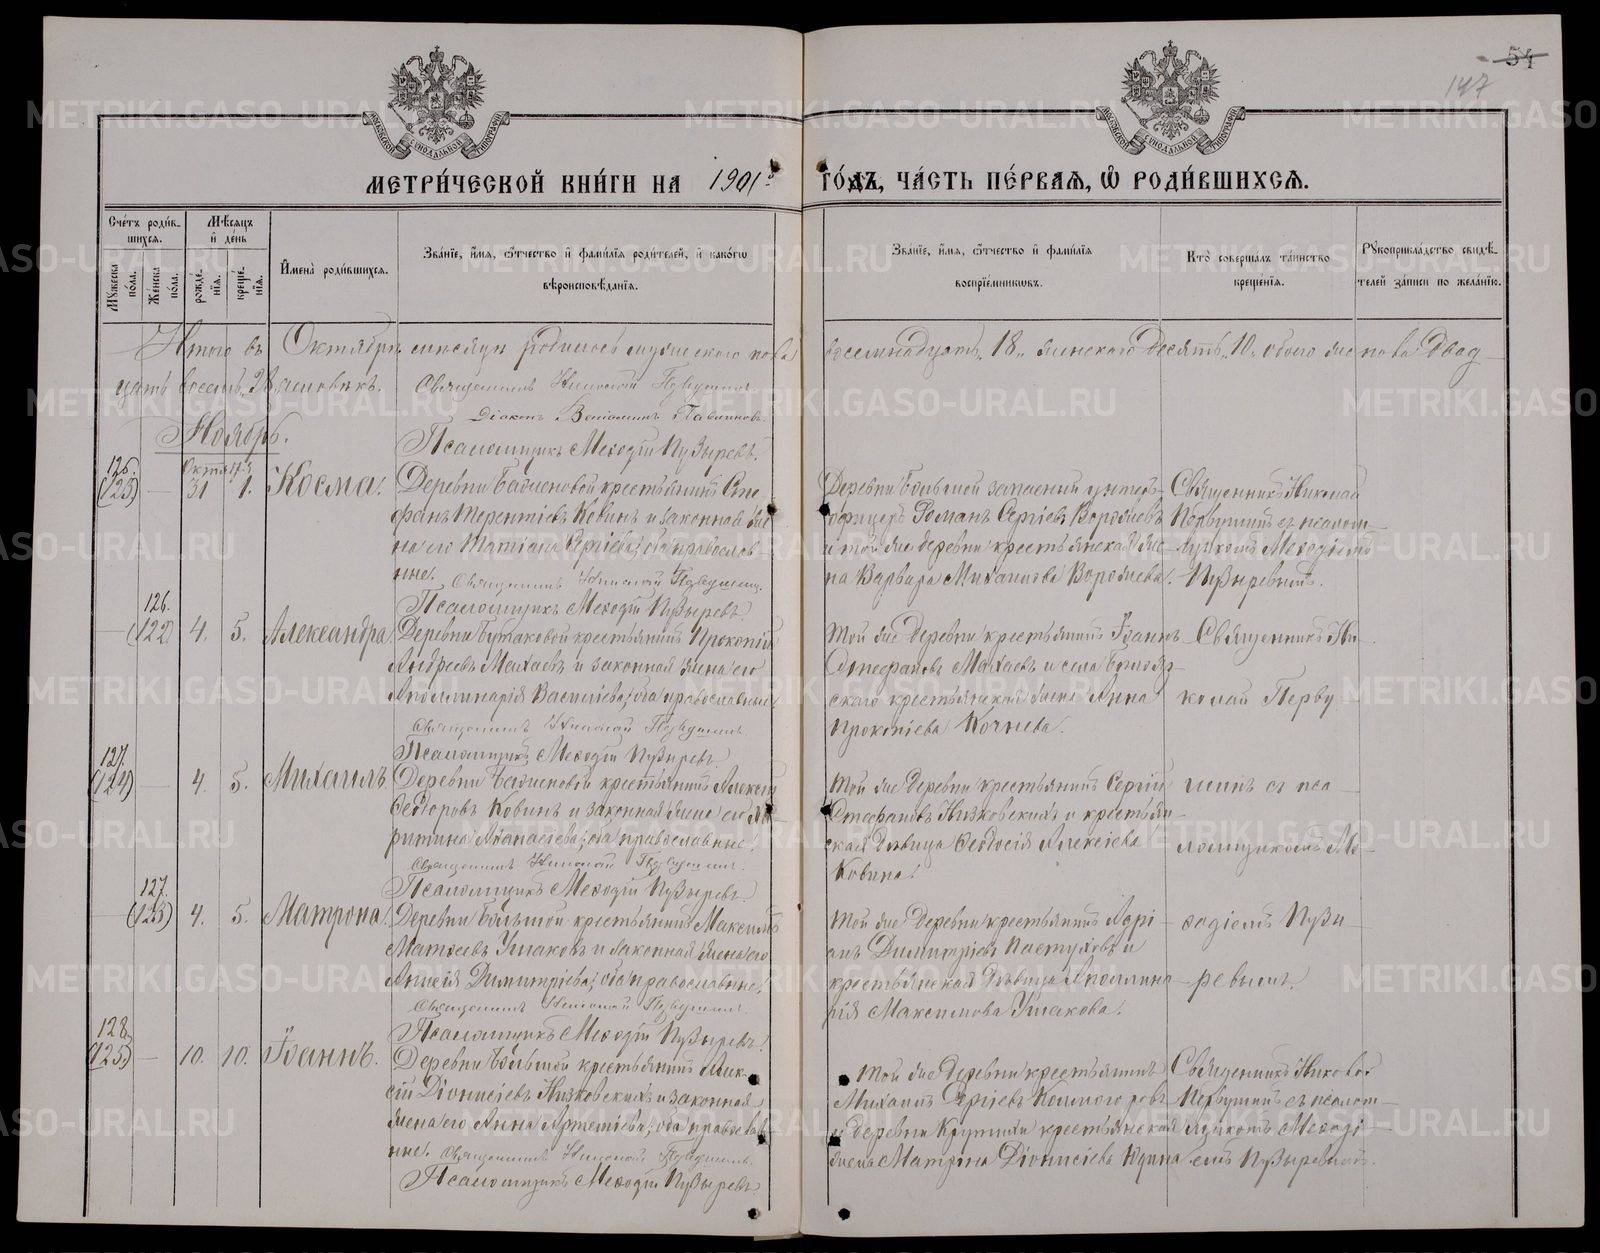 54
147
МОСКОВСКОЙ СѴНОДАЛЬНОЙ ТИПОГРАФІИ
МОСКОВСКОЙ СѴНОДАЛЬНОЙ ТИПОГРАФІИ
МЕТРИ́ЧЕСКОЙ КНИ́ГИ НА 1901 й ГО́ДЪ, ЧА́СТЬ ПЕ́РВАѦ, Ѡ҆ РОДИ́ВШИХСѦ.
Сче́тъ роди́вшихсѧ.
Мꙋ́жеска по́ла.
Же́нска по́ла.
Мѣ́сѧцъ и҆ де́нь
рожде́нїѧ.
креще́нїѧ.
И҆мена̀ роди́вшихсѧ.
Зва́нїе, и҆́мѧ, ѻ҆́тчество и҆ фами́лїѧ роди́телей, и҆ како́гѡ вѣроисповѣ́данїѧ.
Зва́нїе, и҆́мѧ, ѻ҆́тчество и҆ фами́лїѧ воспрїе́мникѡвъ.
Кто̀ соверша́лъ та́инство креще́нїѧ.
Рꙋкоприкла́дство свидѣ́телей за́писи по жела́нїю.
Итого въ Октябрѣ мѣсяцѣ родилось мужескаго пола восемнадцать "18" женскаго десять "10" обоего же пола двад-
цать восемь "28" человѣкъ. Священникъ Николай Первушинъ
Діаконъ Веніаминъ
Ноябрь. Псаломщикъ Меѳодій Пузыревъ.
126.
(123) — Октя. 31 Ноя. 1. Косма. Деревни Бабиновой крестьянинъ Сте-
фанъ Терентіевъ Ковинъ и законная же-
на его Татіана Сергіева; оба православ-
ные. Священникъ Николай Первушинъ.
Псаломщикъ Меѳодій Пузыревъ.
Деревни Большой запасный унтеръ-
офицеръ Романъ Сергіевъ Воробьевъ
и той же деревни крестьянская же-
на Варвара Михаилова Воробьева.
Священникъ Николай
Первушинъ съ псалом-
щикомъ Меѳодіемъ
Пузыревымъ.
126.
— (122) 4. 5. Александра. Деревни Бутаковой крестьянинъ Прокопій
Андреевъ Махаевъ и законная жена его
Аполлинарія Василіева; оба православные.
Священникъ Николай Первушинъ.
Псаломщикъ Меѳодій Пузыревъ.
Той же деревни крестьянинъ Іоаннъ
Стефановъ Махаевъ и села
скаго крестьянская жена Анна
Прокопіева Кочнева.
Священникъ Ни-
колай Перву-
127.
(124) — 4. 5. Михаилъ. Деревни Бабиновой крестьянинъ Алексій
Ѳедоровъ Ковинъ и законная жена его
Аѳанасіева; оба православные.
Священникъ Николай Первушинъ.
Псаломщикъ Меѳодій Пузыревъ.
Той же деревни крестьянинъ Сергій
Стефановъ Низковскихъ и крестьян-
ская дѣвица Ѳеодосія Алексіева
Ковина.
шинъ съ пса-
ломщикомъ Ме-
127.
— (123) 4. 5. Матрона. Деревни Большой крестьянинъ Максимъ
Матѳеевъ Ушаковъ и законная жена его
Анисія Димитріева; оба православные.
Священникъ Николай Первушинъ.
Псаломщикъ Меѳодій Пузыревъ.
Той же деревни крестьянинъ Адрі-
анъ Димитріевъ Пастуховъ и
крестьянская дѣвица Аполлина-
рія Максимова Ушакова.
ѳодіемъ Пузы-
ревымъ.
128.
(125) — 10. 10. Іоаннъ. Деревни Большой крестьянинъ Алек-
сій Діонисіевъ Низковскихъ и законная
жена его Анна Артеміева; оба православ-
ные. Священникъ Николай Первушинъ.
Псаломщикъ Меѳодій Пузыревъ.
Той же деревни крестьянинъ
Михаилъ Сергіевъ
и деревни Крутихи крестьянская
жена Матрона Діонисіева Юдина
Священникъ Николай
Первушинъ съ псалом-
щикомъ Меѳоді-
емъ Пузыревымъ.
METRIKI.GASO-URAL.RU